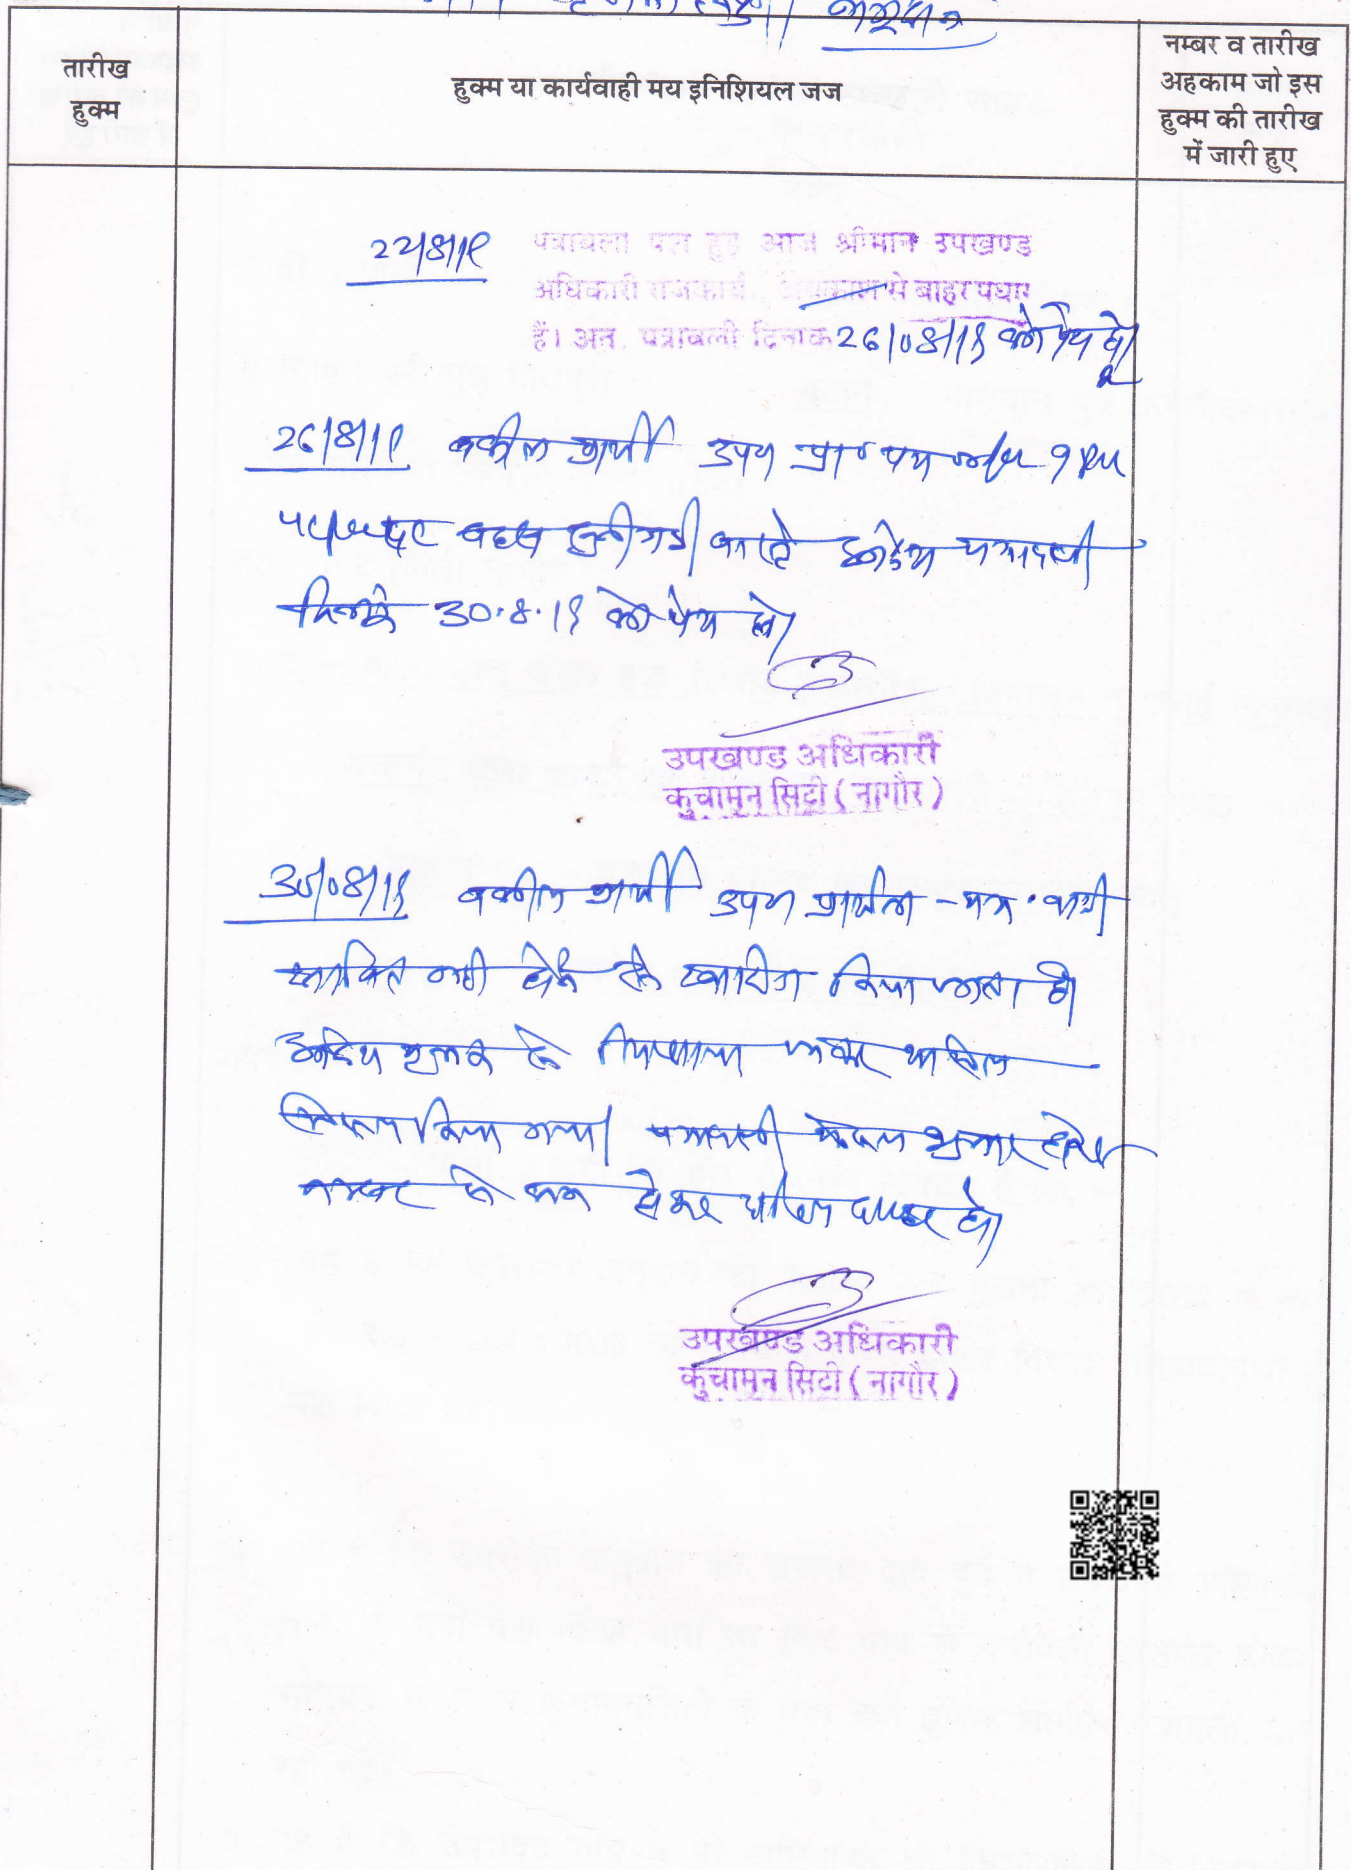 तारीख
हुक्म
हुक्म या कार्यवाही मय इनिशियल जज
नम्बर व तारीख
अहकाम जो इस
हुक्म की तारीख
में जारी हुए
22/8/19 पत्रावली पेश हुई आज श्रीमान उपखण्ड
अधिकारी राजकार्य, अवकाश से बाहर पधारे
हैं। अत. पत्रावली दिनांक 26/08/19 को पेश हो।
26/8/19 वकील प्रार्थी उप० प्रा० पत्र
बहस सुनी गई। वास्ते आदेश पत्रावली
दिनांक 30.8.19 को पेश हो।
उपखण्ड अधिकारी
कुचामन सिटी (नागौर)
30/08/19 वकील प्रार्थी उप० प्रार्थना-पत्र
साबित नहीं होने से खारिज किया जाता है।
आदेश पृथक से लिखाया जाकर शामिल
किया गया। पत्रावली फैसल शुमार होकर
नम्बर से कम होकर दाखिल दफ्तर हो।
उपखण्ड अधिकारी
कुचामन सिटी (नागौर)